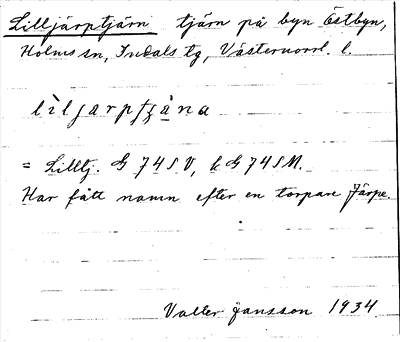 Lilljärptjärn tjärn på byn Östbyn,
Holms sn, Indals tg, Västernorrl. l.
lìljarptʃäna
= Lilltj. G 74 S V, k G 74 S M.
Har fått namn efter en torpare Järpe.
Valter Jansson 1934